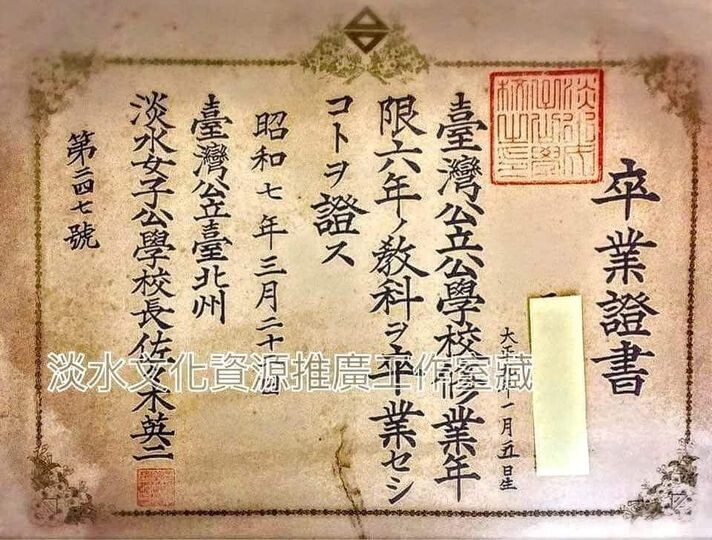 卒業證書
淡水女
子公學
校之印
大正年一月五日生
臺灣公立公學校修業年
限六年ノ教科ヲ卒業セシ
コトヲ證ス
昭和七年三月二十日
臺灣公立臺北州
淡水女子公學校長佐々木英二
第二四七號
淡水文化資源推廣工作室藏